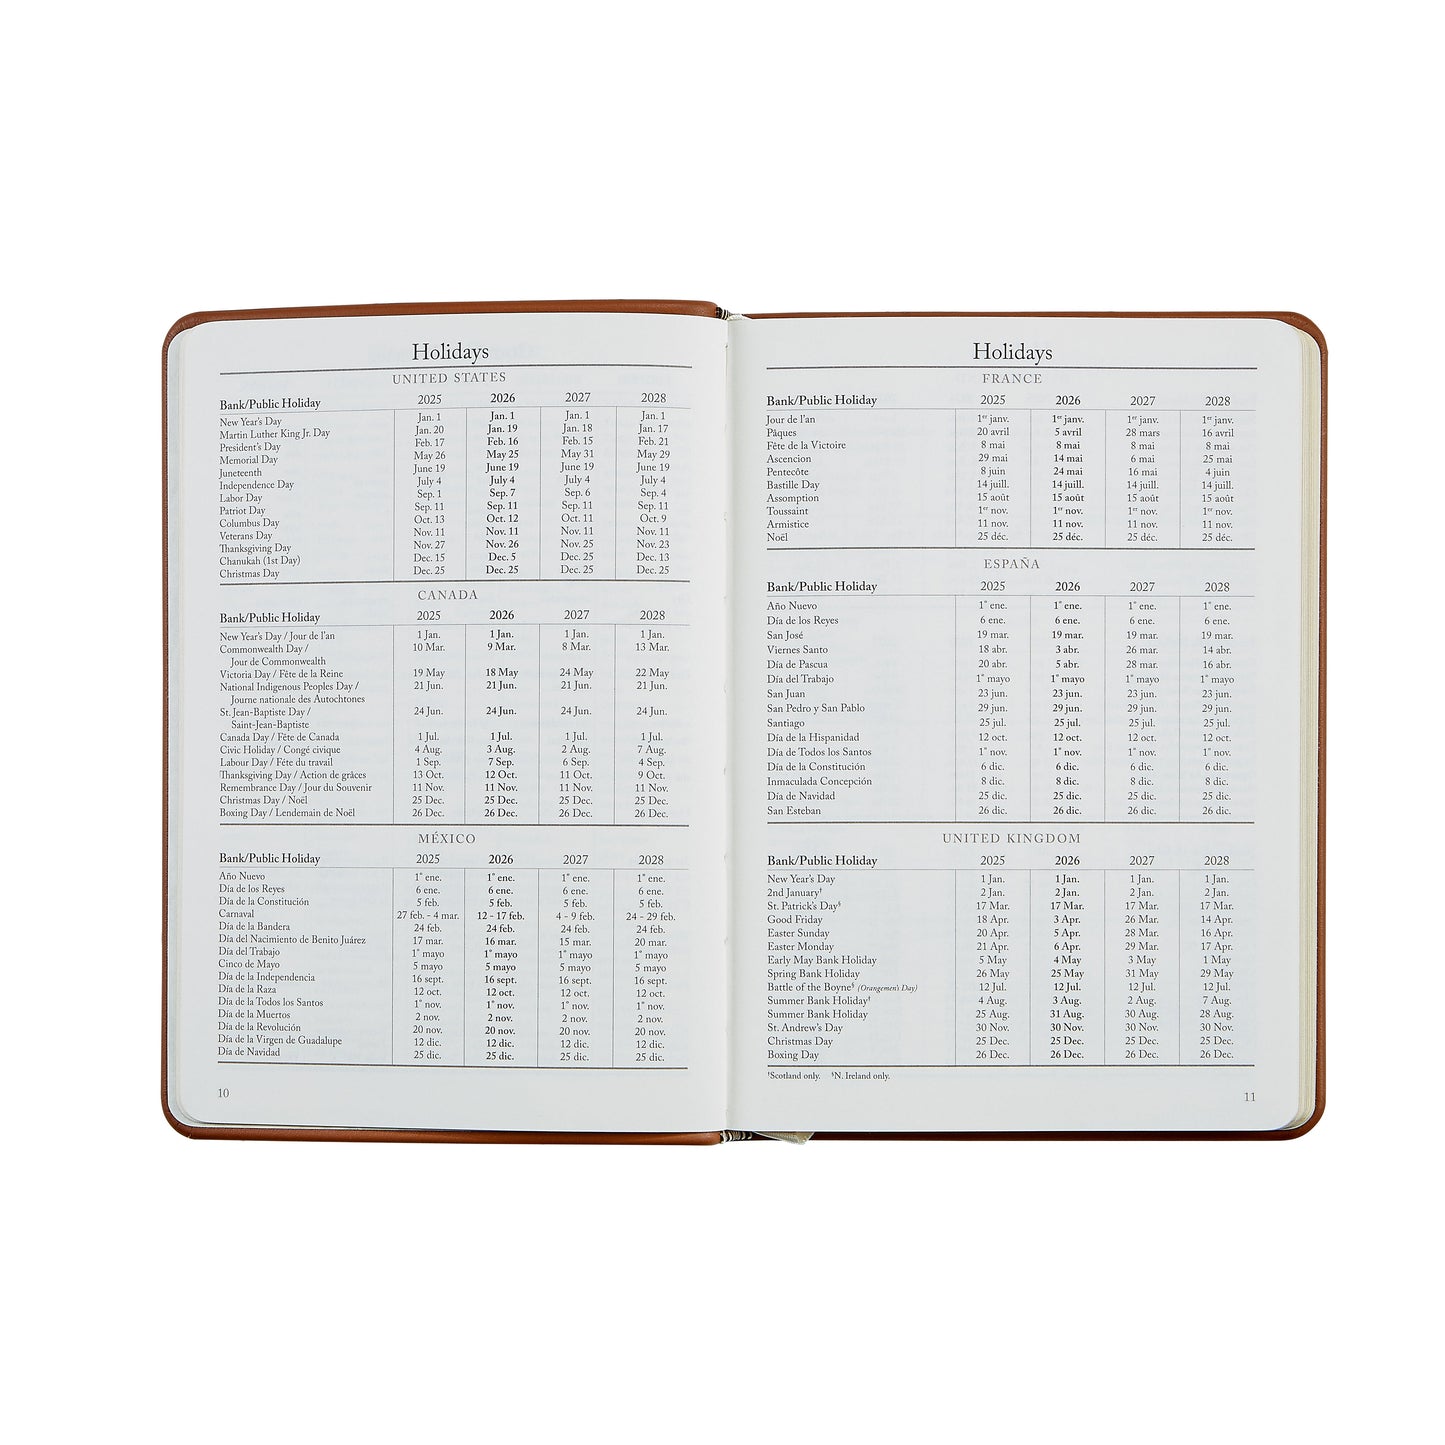 Holidays
UNITED STATES
Bank/Public Holiday 2025 2026 2027 2028
New Year's Day Jan. 1 Jan. 1 Jan. 1 Jan. 1
Martin Luther King Jr. Day Jan. 20 Jan. 19 Jan. 18 Jan. 17
President's Day Feb. 17 Feb. 16 Feb. 15 Feb. 21
Memorial Day May 26 May 25 May 31 May 29
Juneteenth June 19 June 19 June 19 June 19
Independence Day July 4 July 4 July 4 July 4
Labor Day Sep. 1 Sep. 7 Sep. 6 Sep. 4
Patriot Day Sep. 11 Sep. 11 Sep. 11 Sep. 11
Columbus Day Oct. 13 Oct. 12 Oct. 11 Oct. 9
Veterans Day Nov. 11 Nov. 11 Nov. 11 Nov. 11
Thanksgiving Day Nov. 27 Nov. 26 Nov. 25 Nov. 23
Chanukah (1st Day) Dec. 15 Dec. 5 Dec. 25 Dec. 13
Christmas Day Dec. 25 Dec. 25 Dec. 25 Dec. 25
CANADA
Bank/Public Holiday 2025 2026 2027 2028
New Year's Day / Jour de l'an 1 Jan. 1 Jan. 1 Jan. 1 Jan.
Commonwealth Day / 10 Mar. 9 Mar. 8 Mar. 13 Mar.
Jour de Commonwealth
Victoria Day / Fête de la Reine 19 May 18 May 24 May 22 May
National Indigenous Peoples Day / 21 Jun. 21 Jun. 21 Jun. 21 Jun.
Journe nationale des Autochtones
St. Jean-Baptiste Day / 24 Jun. 24 Jun. 24 Jun. 24 Jun.
Saint-Jean-Baptiste
Canada Day / Fête de Canada 1 Jul. 1 Jul. 1 Jul. 1 Jul.
Civic Holiday / Congé civique 4 Aug. 3 Aug. 2 Aug. 7 Aug.
Labour Day / Fête du travail 1 Sep. 7 Sep. 6 Sep. 4 Sep.
Thanksgiving Day / Action de grâces 13 Oct. 12 Oct. 11 Oct. 9 Oct.
Remembrance Day / Jour du Souvenir 11 Nov. 11 Nov. 11 Nov. 11 Nov.
Christmas Day / Noël 25 Dec. 25 Dec. 25 Dec. 25 Dec.
Boxing Day / Lendemain de Noël 26 Dec. 26 Dec. 26 Dec. 26 Dec.
MÉXICO
Bank/Public Holiday 2025 2026 2027 2028
Año Nuevo 1° ene. 1° ene. 1° ene. 1° ene.
Día de los Reyes 6 ene. 6 ene. 6 ene. 6 ene.
Día de la Constitución 5 feb. 5 feb. 5 feb. 5 feb.
Carnaval 27 feb. - 4 mar. 12 - 17 feb. 4 - 9 feb. 24 - 29 feb.
Día de la Bandera 24 feb. 24 feb. 24 feb. 24 feb.
Día del Nacimiento de Benito Juárez 17 mar. 16 mar. 15 mar. 20 mar.
Día del Trabajo 1° mayo 1° mayo 1° mayo 1° mayo
Cinco de Mayo 5 mayo 5 mayo 5 mayo 5 mayo
Día de la Independencia 16 sept. 16 sept. 16 sept. 16 sept.
Día de la Raza 12 oct. 12 oct. 12 oct. 12 oct.
Día de la Todos los Santos 1° nov. 1° nov. 1° nov. 1° nov.
Día de la Muertos 2 nov. 2 nov. 2 nov. 2 nov.
Día de la Revolución 20 nov. 20 nov. 20 nov. 20 nov.
Día de la Virgen de Guadalupe 12 dic. 12 dic. 12 dic. 12 dic.
Día de Navidad 25 dic. 25 dic. 25 dic. 25 dic.
10
Holidays
FRANCE
Bank/Public Holiday 2025 2026 2027 2028
Jour de l'an 1er janv. 1er janv. 1er janv. 1er janv.
Pâques 20 avril 5 avril 28 mars 16 avril
Fête de la Victoire 8 mai 8 mai 8 mai 8 mai
Ascencion 29 mai 14 mai 6 mai 25 mai
Pentecôte 8 juin 24 mai 16 mai 4 juin
Bastille Day 14 juill. 14 juill. 14 juill. 14 juill.
Assomption 15 août 15 août 15 août 15 août
Toussaint 1er nov. 1er nov. 1er nov. 1er nov.
Armistice 11 nov. 11 nov. 11 nov. 11 nov.
Noël 25 déc. 25 déc. 25 déc. 25 déc.
ESPAÑA
Bank/Public Holiday 2025 2026 2027 2028
Año Nuevo 1° ene. 1° ene. 1° ene. 1° ene.
Día de los Reyes 6 ene. 6 ene. 6 ene. 6 ene.
San José 19 mar. 19 mar. 19 mar. 19 mar.
Viernes Santo 18 abr. 3 abr. 26 mar. 14 abr.
Día de Pascua 20 abr. 5 abr. 28 mar. 16 abr.
Día del Trabajo 1° mayo 1° mayo 1° mayo 1° mayo
San Juan 23 jun. 23 jun. 23 jun. 23 jun.
San Pedro y San Pablo 29 jun. 29 jun. 29 jun. 29 jun.
Santiago 25 jul. 25 jul. 25 jul. 25 jul.
Día de la Hispanidad 12 oct. 12 oct. 12 oct. 12 oct.
Día de Todos los Santos 1° nov. 1° nov. 1° nov. 1° nov.
Día de la Constitución 6 dic. 6 dic. 6 dic. 6 dic.
Inmaculada Concepción 8 dic. 8 dic. 8 dic. 8 dic.
Día de Navidad 25 dic. 25 dic. 25 dic. 25 dic.
San Esteban 26 dic. 26 dic. 26 dic. 26 dic.
UNITED KINGDOM
Bank/Public Holiday 2025 2026 2027 2028
New Year's Day 1 Jan. 1 Jan. 1 Jan. 1 Jan.
2nd January† 2 Jan. 2 Jan. 2 Jan. 2 Jan.
St. Patrick's Day§ 17 Mar. 17 Mar. 17 Mar. 17 Mar.
Good Friday 18 Apr. 3 Apr. 26 Mar. 14 Apr.
Easter Sunday 20 Apr. 5 Apr. 28 Mar. 16 Apr.
Easter Monday 21 Apr. 6 Apr. 29 Mar. 17 Apr.
Early May Bank Holiday 5 May 4 May 3 May 1 May
Spring Bank Holiday 26 May 25 May 31 May 29 May
Battle of the Boyne§ (Orangemen's Day) 12 Jul. 12 Jul. 12 Jul. 12 Jul.
Summer Bank Holiday† 4 Aug. 3 Aug. 2 Aug. 7 Aug.
Summer Bank Holiday 25 Aug. 31 Aug. 30 Aug. 28 Aug.
St. Andrew's Day 30 Nov. 30 Nov. 30 Nov. 30 Nov.
Christmas Day 25 Dec. 25 Dec. 25 Dec. 25 Dec.
Boxing Day 26 Dec. 26 Dec. 26 Dec. 26 Dec.
†Scotland only. §N. Ireland only.
11